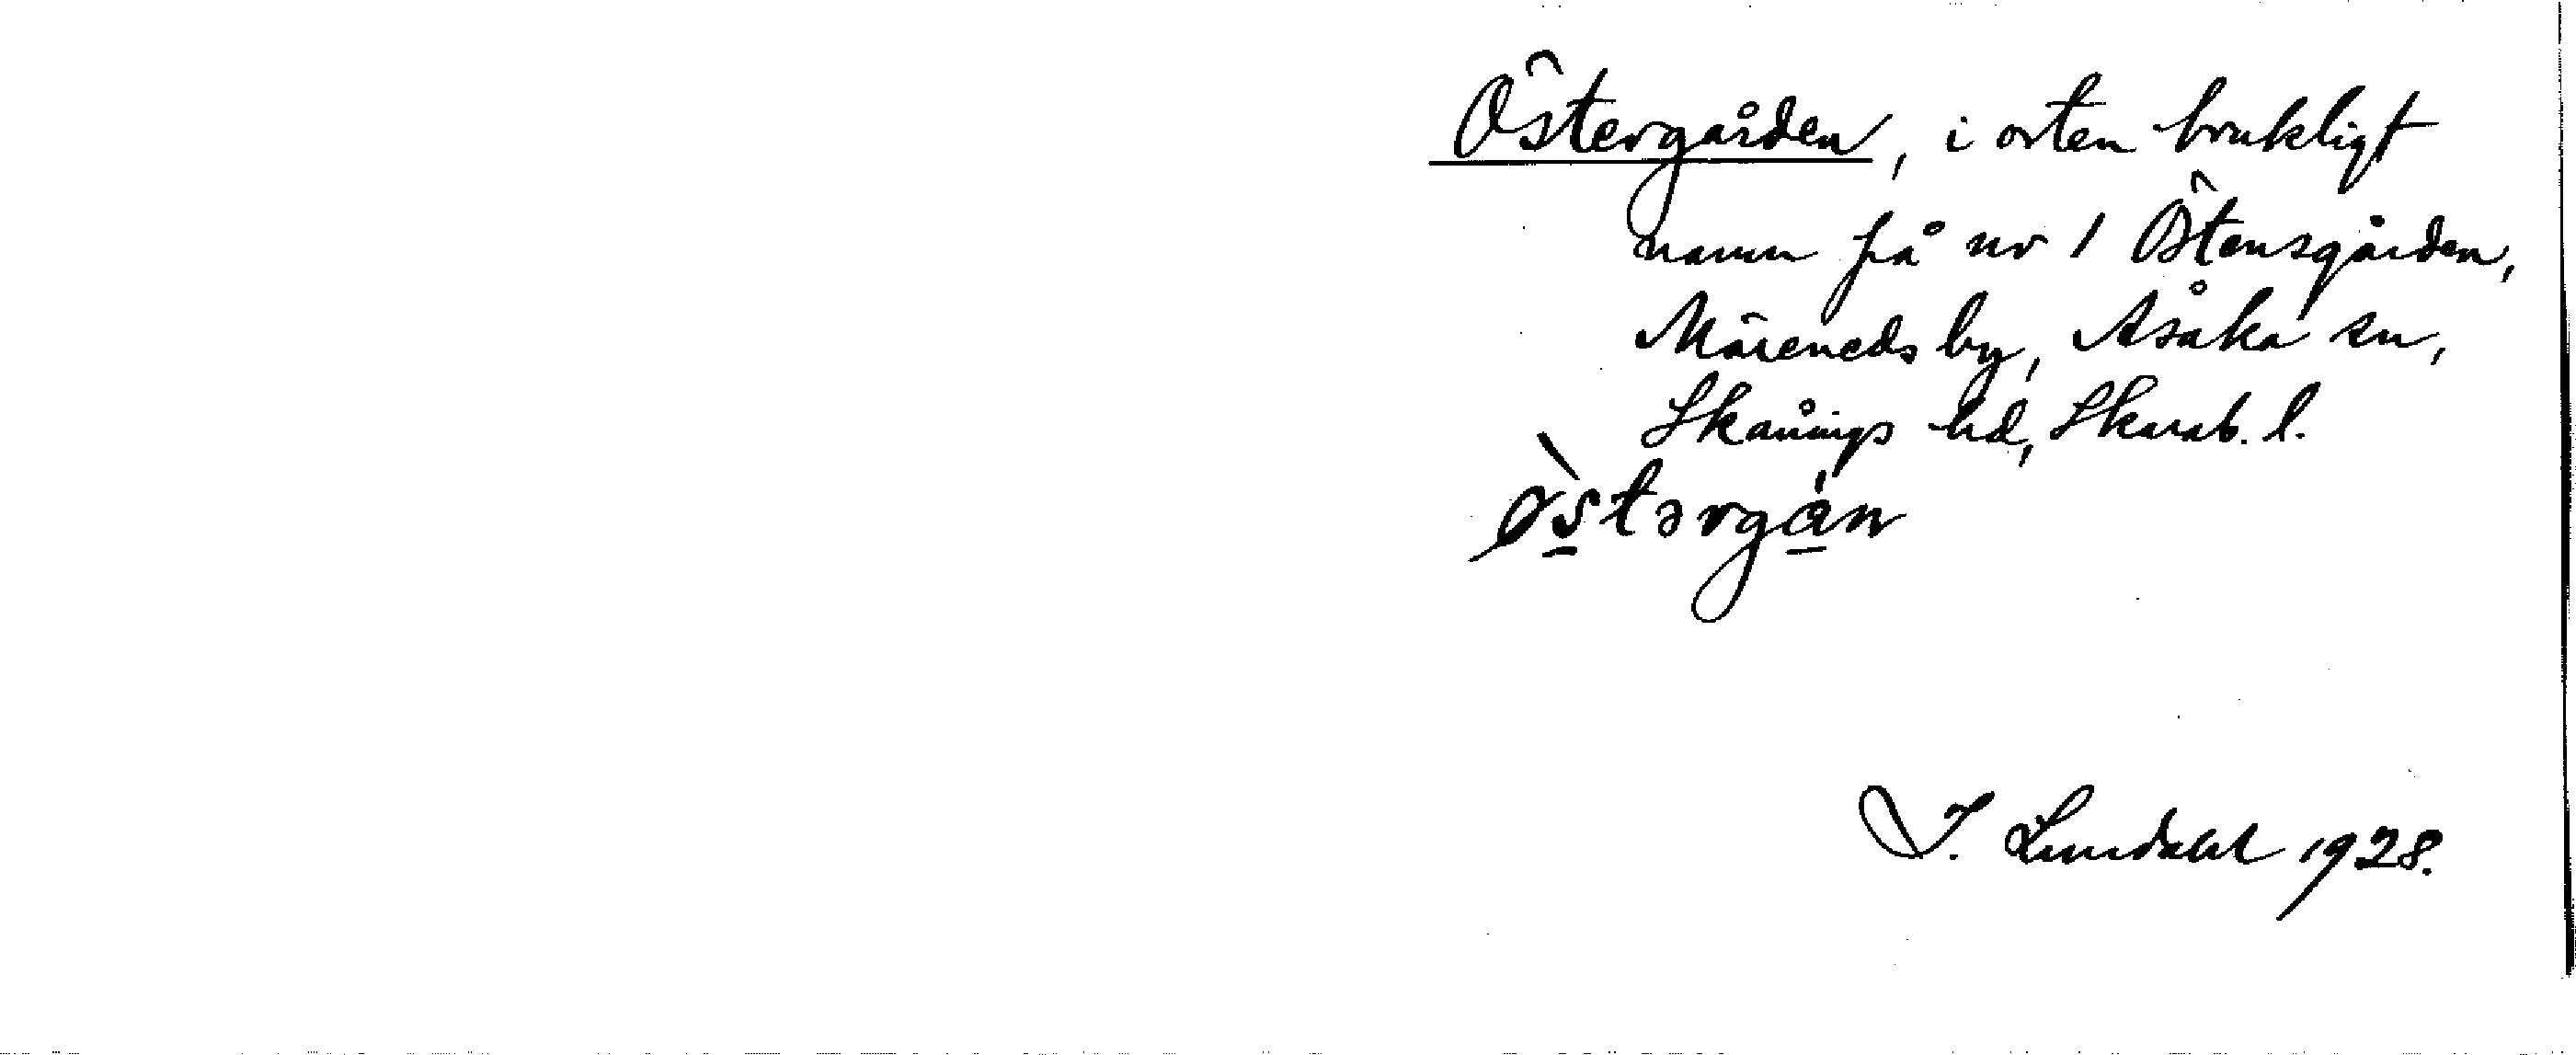 Östergården, i orten brukligt
namn på nr 1 Östensgården,
Märeneds by, Åsaka sn,
Skånings hd, Skarab. l.
ø̀stərgán
J. Lundahl 1928.